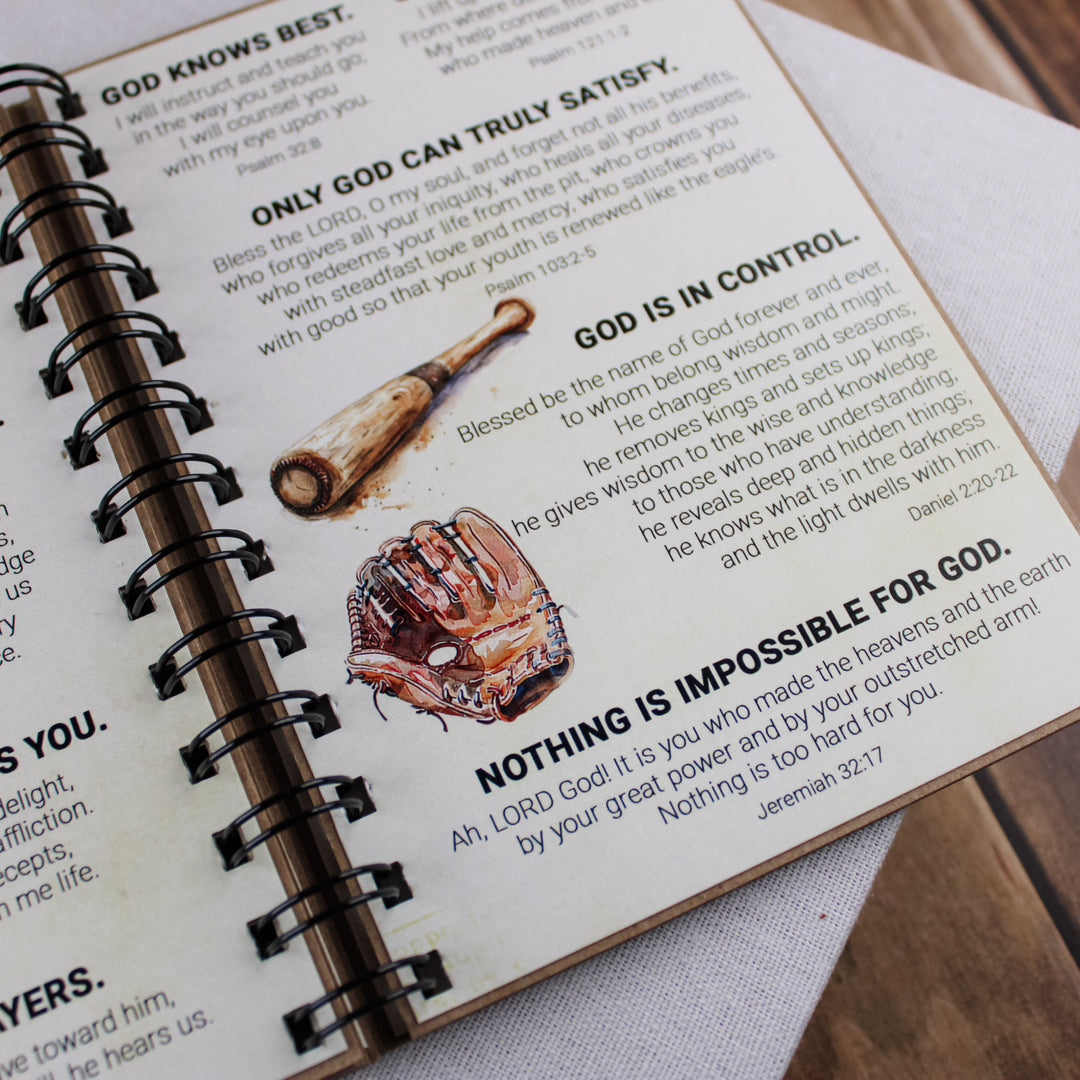 s,
dge
us
ry
ce.
S YOU.
delight,
affliction.
ecepts,
n me life.
AYERS.
ve toward him,
he hears us.
GOD KNOWS BEST.
I will instruct and teach you
in the way you should go;
I will counsel you
with my eye upon you.
Psalm 32:8
I lift up
From where does
My help comes from
who made heaven and
Psalm 121:1-2
ONLY GOD CAN TRULY SATISFY.
Bless the LORD, O my soul, and forget not all his benefits,
who forgives all your iniquity, who heals all your diseases,
who redeems your life from the pit, who crowns you
with steadfast love and mercy, who satisfies you
with good so that your youth is renewed like the eagle's.
Psalm 103:2-5
GOD IS IN CONTROL.
Blessed be the name of God forever and ever,
to whom belong wisdom and might.
He changes times and seasons;
he removes kings and sets up kings;
he gives wisdom to the wise and knowledge
to those who have understanding;
he reveals deep and hidden things;
he knows what is in the darkness
and the light dwells with him.
Daniel 2:20-22
NOTHING IS IMPOSSIBLE FOR GOD.
Ah, LORD God! It is you who made the heavens and the earth
by your great power and by your outstretched arm!
Nothing is too hard for you.
Jeremiah 32:17